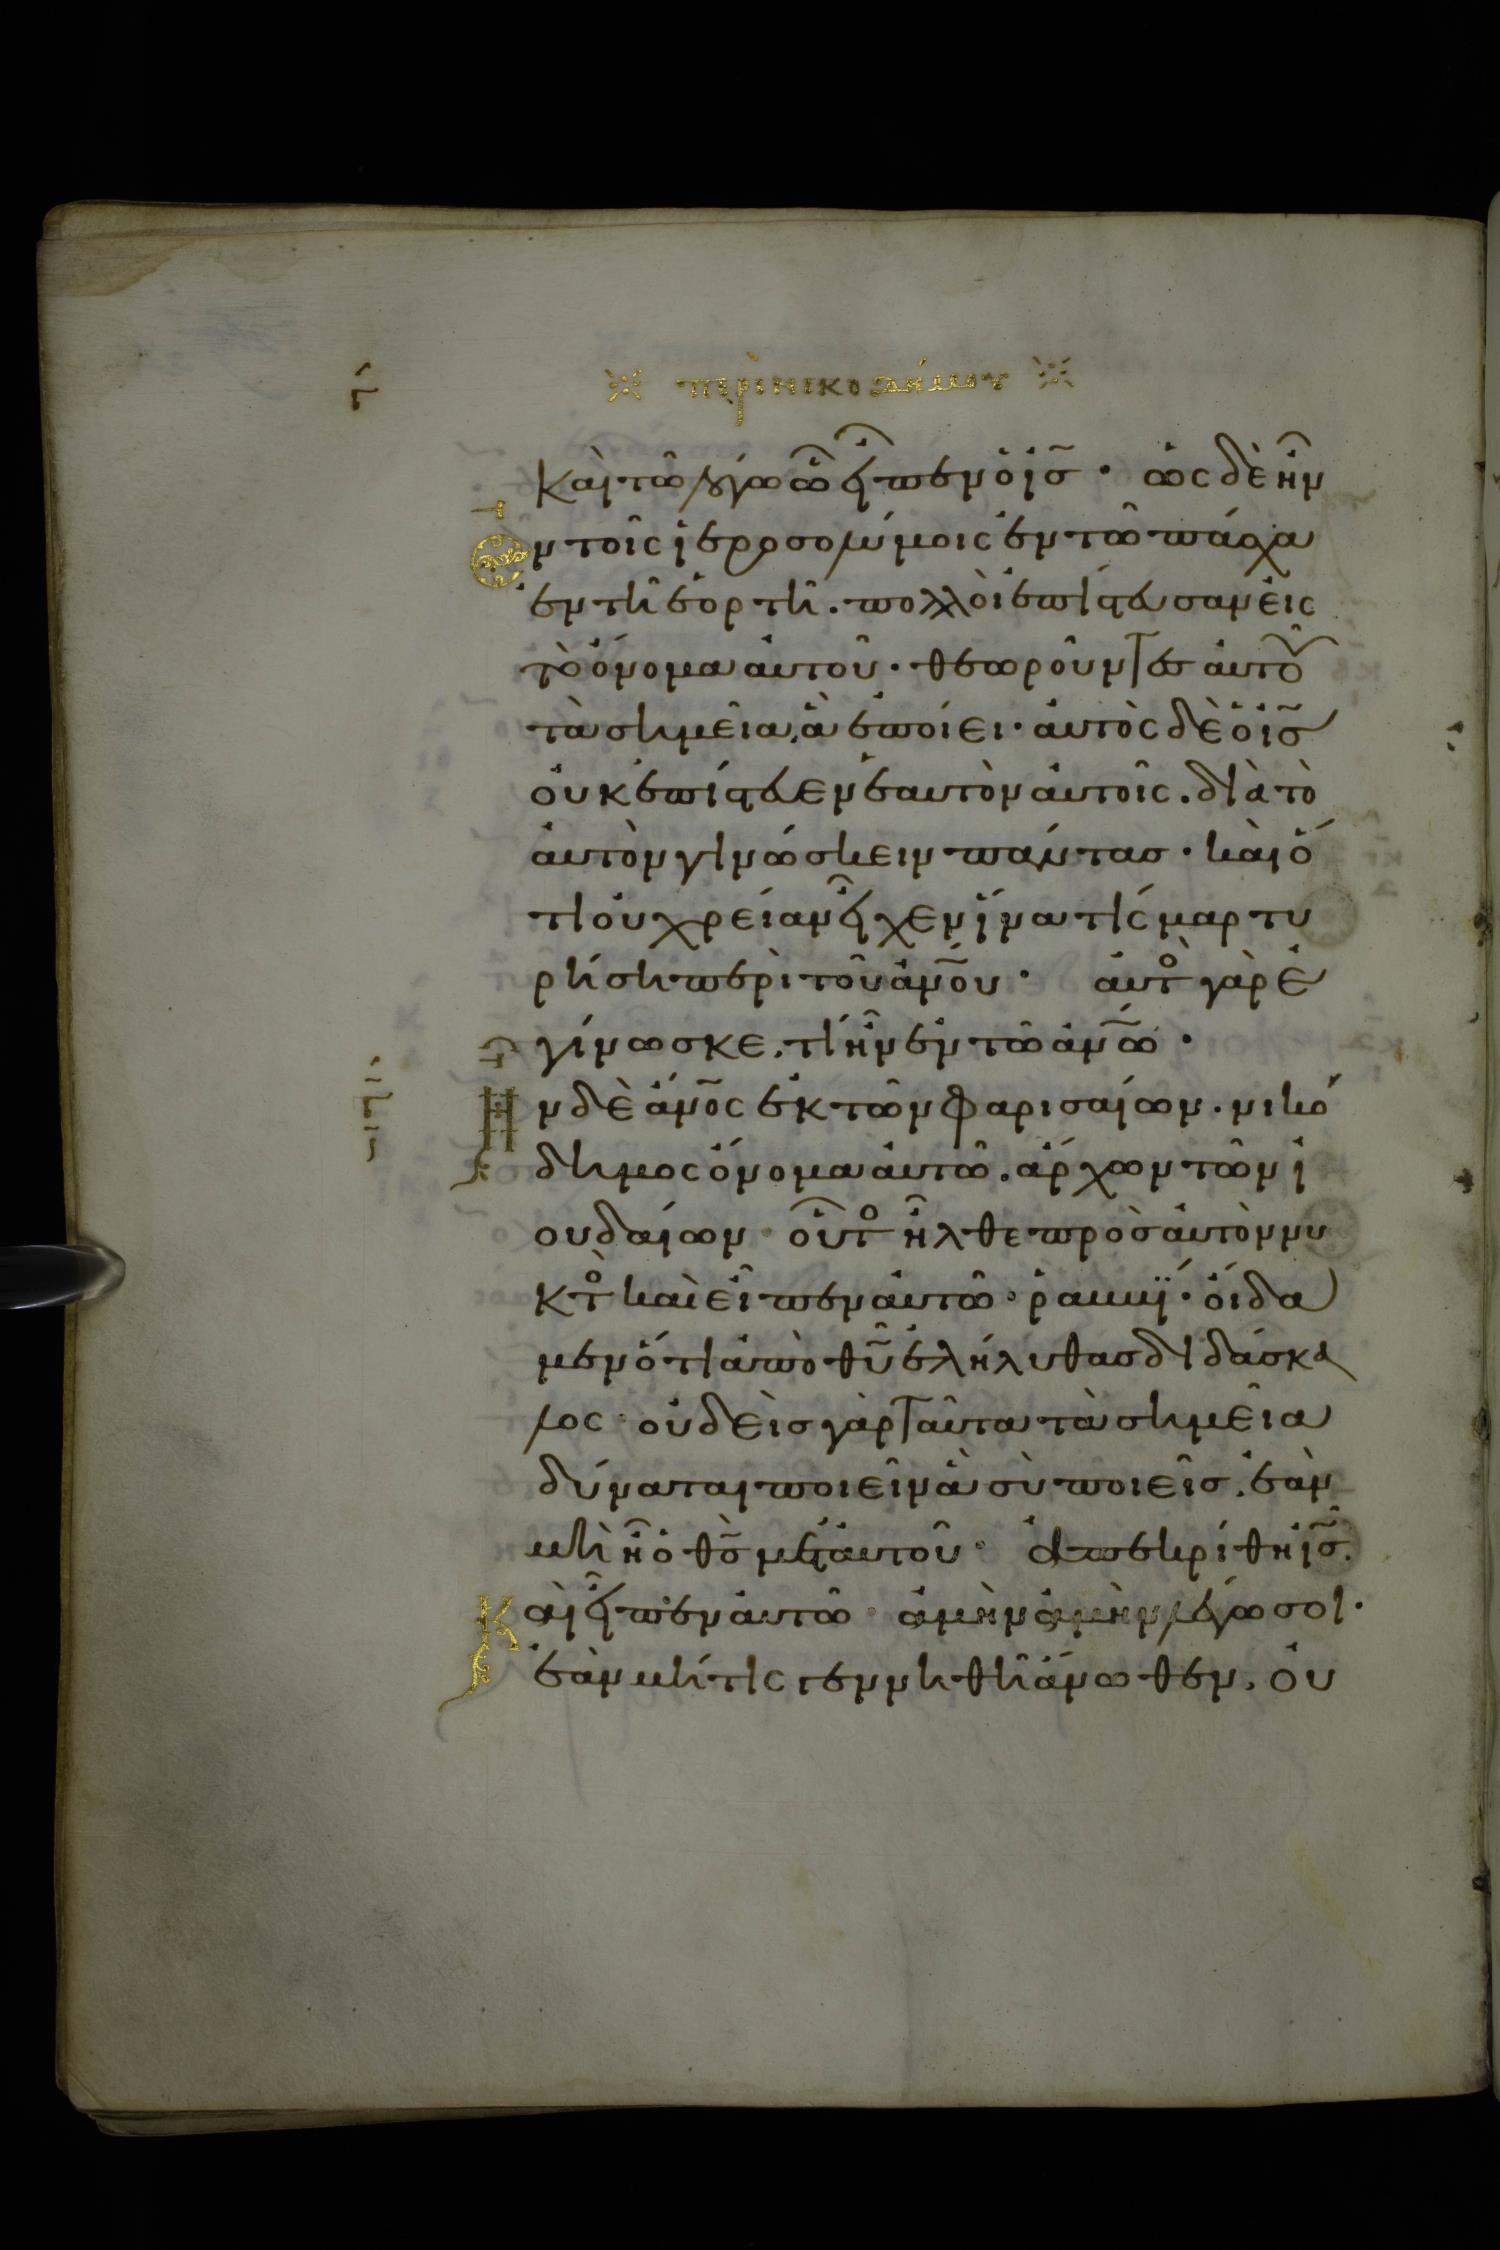 περὶ νικοδήμου
καὶ τῶ λόγω ὧ εἶπεν ὁ ἰσ̅ · ὡς δὲ ἦν
ἐν τοῖς ἱεροσολύμοις ἐν τῶ πάσχα
ἐν τῆ ἑορτῆ · πολλοὶ ἐπίστευσαν εἰς
τὸ ὄνομα αὐτοῦ · θεωροῦντες αὐτοῦ
τὰ σημεῖα, ἃ ἐποίει · αὐτὸς δὲ ὁ ἰσ̅
οὐκ ἐπίστευεν ἑαυτὸν αὐτοῖς . διὰ τὸ
αὐτὸν γινώσκειν πάντασ · καὶ ὅ
τι οὐ χρείαν εἶχεν ἵνα τίς μαρτυ
ρήση περὶ τοῦ ἀν̅ου · αὐτὸς γὰρ ἐ
γίνωσκε, τί ἦν ἐν τῶ ἀν̅ω ·
Ην δὲ ἀν̅ος ἐκ τῶν φαρισαίων . νικό
δημος ὄνομα αὐτῶ . ἄρχων τῶν ἰ
ουδαίων · οὗτος ἦλθε πρὸσ αὐτὸν νυ
κτὸς καὶ εἶπεν αὐτῶ · ῥαββΐ · οἴδα
μεν ὅτι ἀπὸ θ̅υ ἐλήλυθασ διδάσκα
λος · οὐδεὶσ γὰρ ταῦτα τὰ σημεῖα
δύναται ποιεῖν ἃ σὺ ποιεῖσ, ἐὰν
μὴ ἦ ὁ θ̅σ μετ αὐτοῦ · ἀπεκρίθη ἰσ̅.
Καὶ εἶπεν αὐτῶ · ἀμὴν ἀμὴν λέγω σοι ·
ἐὰν μή τις γεννηθῆ ἄνωθεν, οὐ